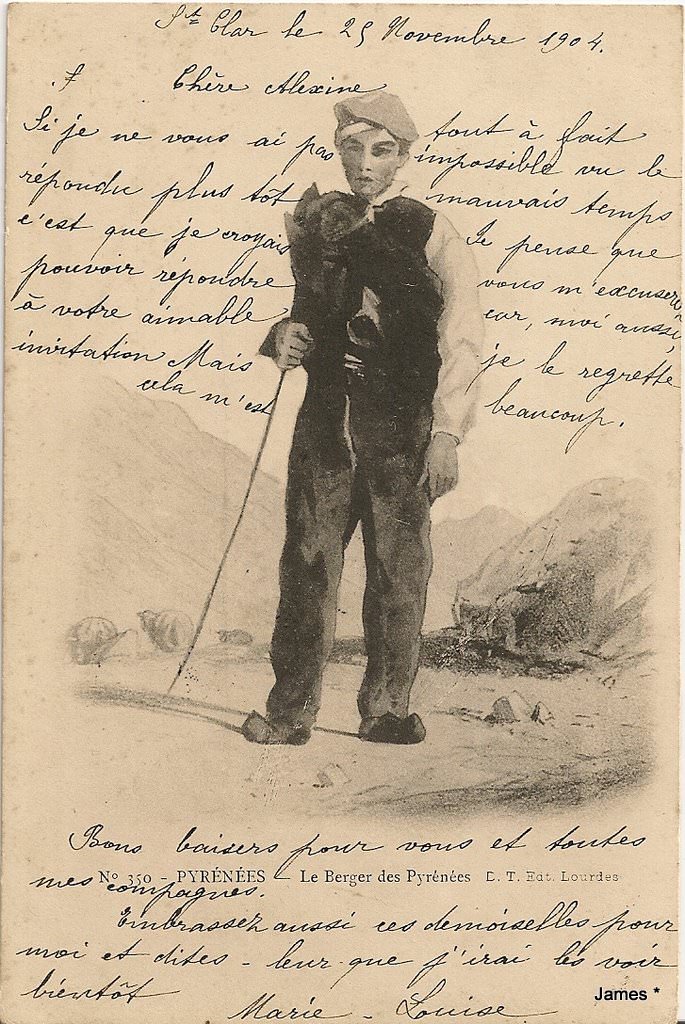 St Clar le 25 Novembre 1904.
Chère Alexine
Si je ne vous ai pas
répondu plus tôt
c'est que je croyais
pouvoir répondre
à votre aimable
invitation Mais
cela m'est
tout à fait
impossible vu le
mauvais temps
Je pense que
vous m'excuserez
car, moi aussi,
je le regrette
beaucoup.
Bons baisers pour vous et toutes
mes compagnes.
No 350 - PYRÉNÉES - Le Berger des Pyrénées E. T. Edt. Lourdes
Embrassez aussi ces demoiselles pour
moi et dites-leur que j'irai les voir
bientôt
Marie-Louise
James *